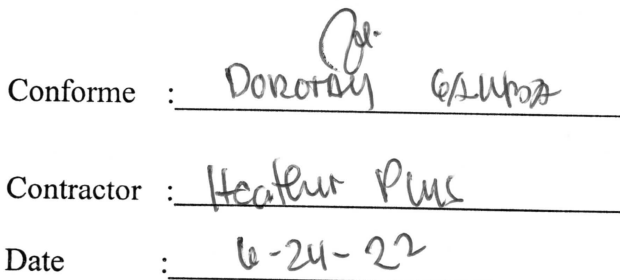 Conforme : DOROTHY
Contractor : Heather Plus
Date : 6-24-22